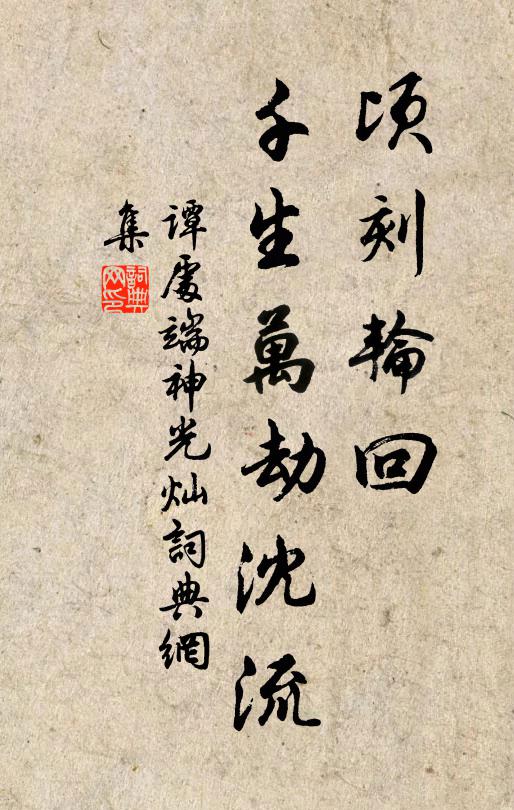 頃刻輪回
千生萬劫沈流
譚處端神光灿詞典網
集
詞典網印